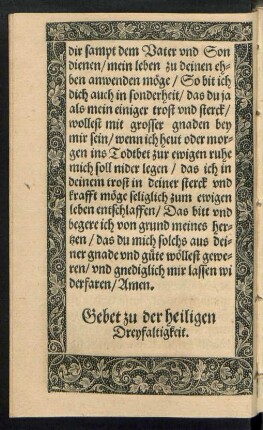 dir sampt dem Vater vnd Son
dienen/mein leben zu deinen eh-
ben anwenden möge/So bit ich
dich auch in sonderheit/das du ja
als mein einiger trost vnd sterck/
wollest mit grosser gnaden bey
mir sein/wenn ich heut oder mor-
gen ins Todtbet zur ewigen ruhe
mich soll nider legen/das ich in
deinem trost in deiner sterck vnd
krafft möge seliglich zum ewigen
leben entschlaffen/Das bitt vnd
begere ich von grund meines her-
tzen/das du mich solchs aus dei-
ner gnade vnd güte wöllest gewe-
ren/vnd gnediglich mir lassen wi
derfaren/Amen.
Gebet zu der heiligen
Dreyfaltigkeit.